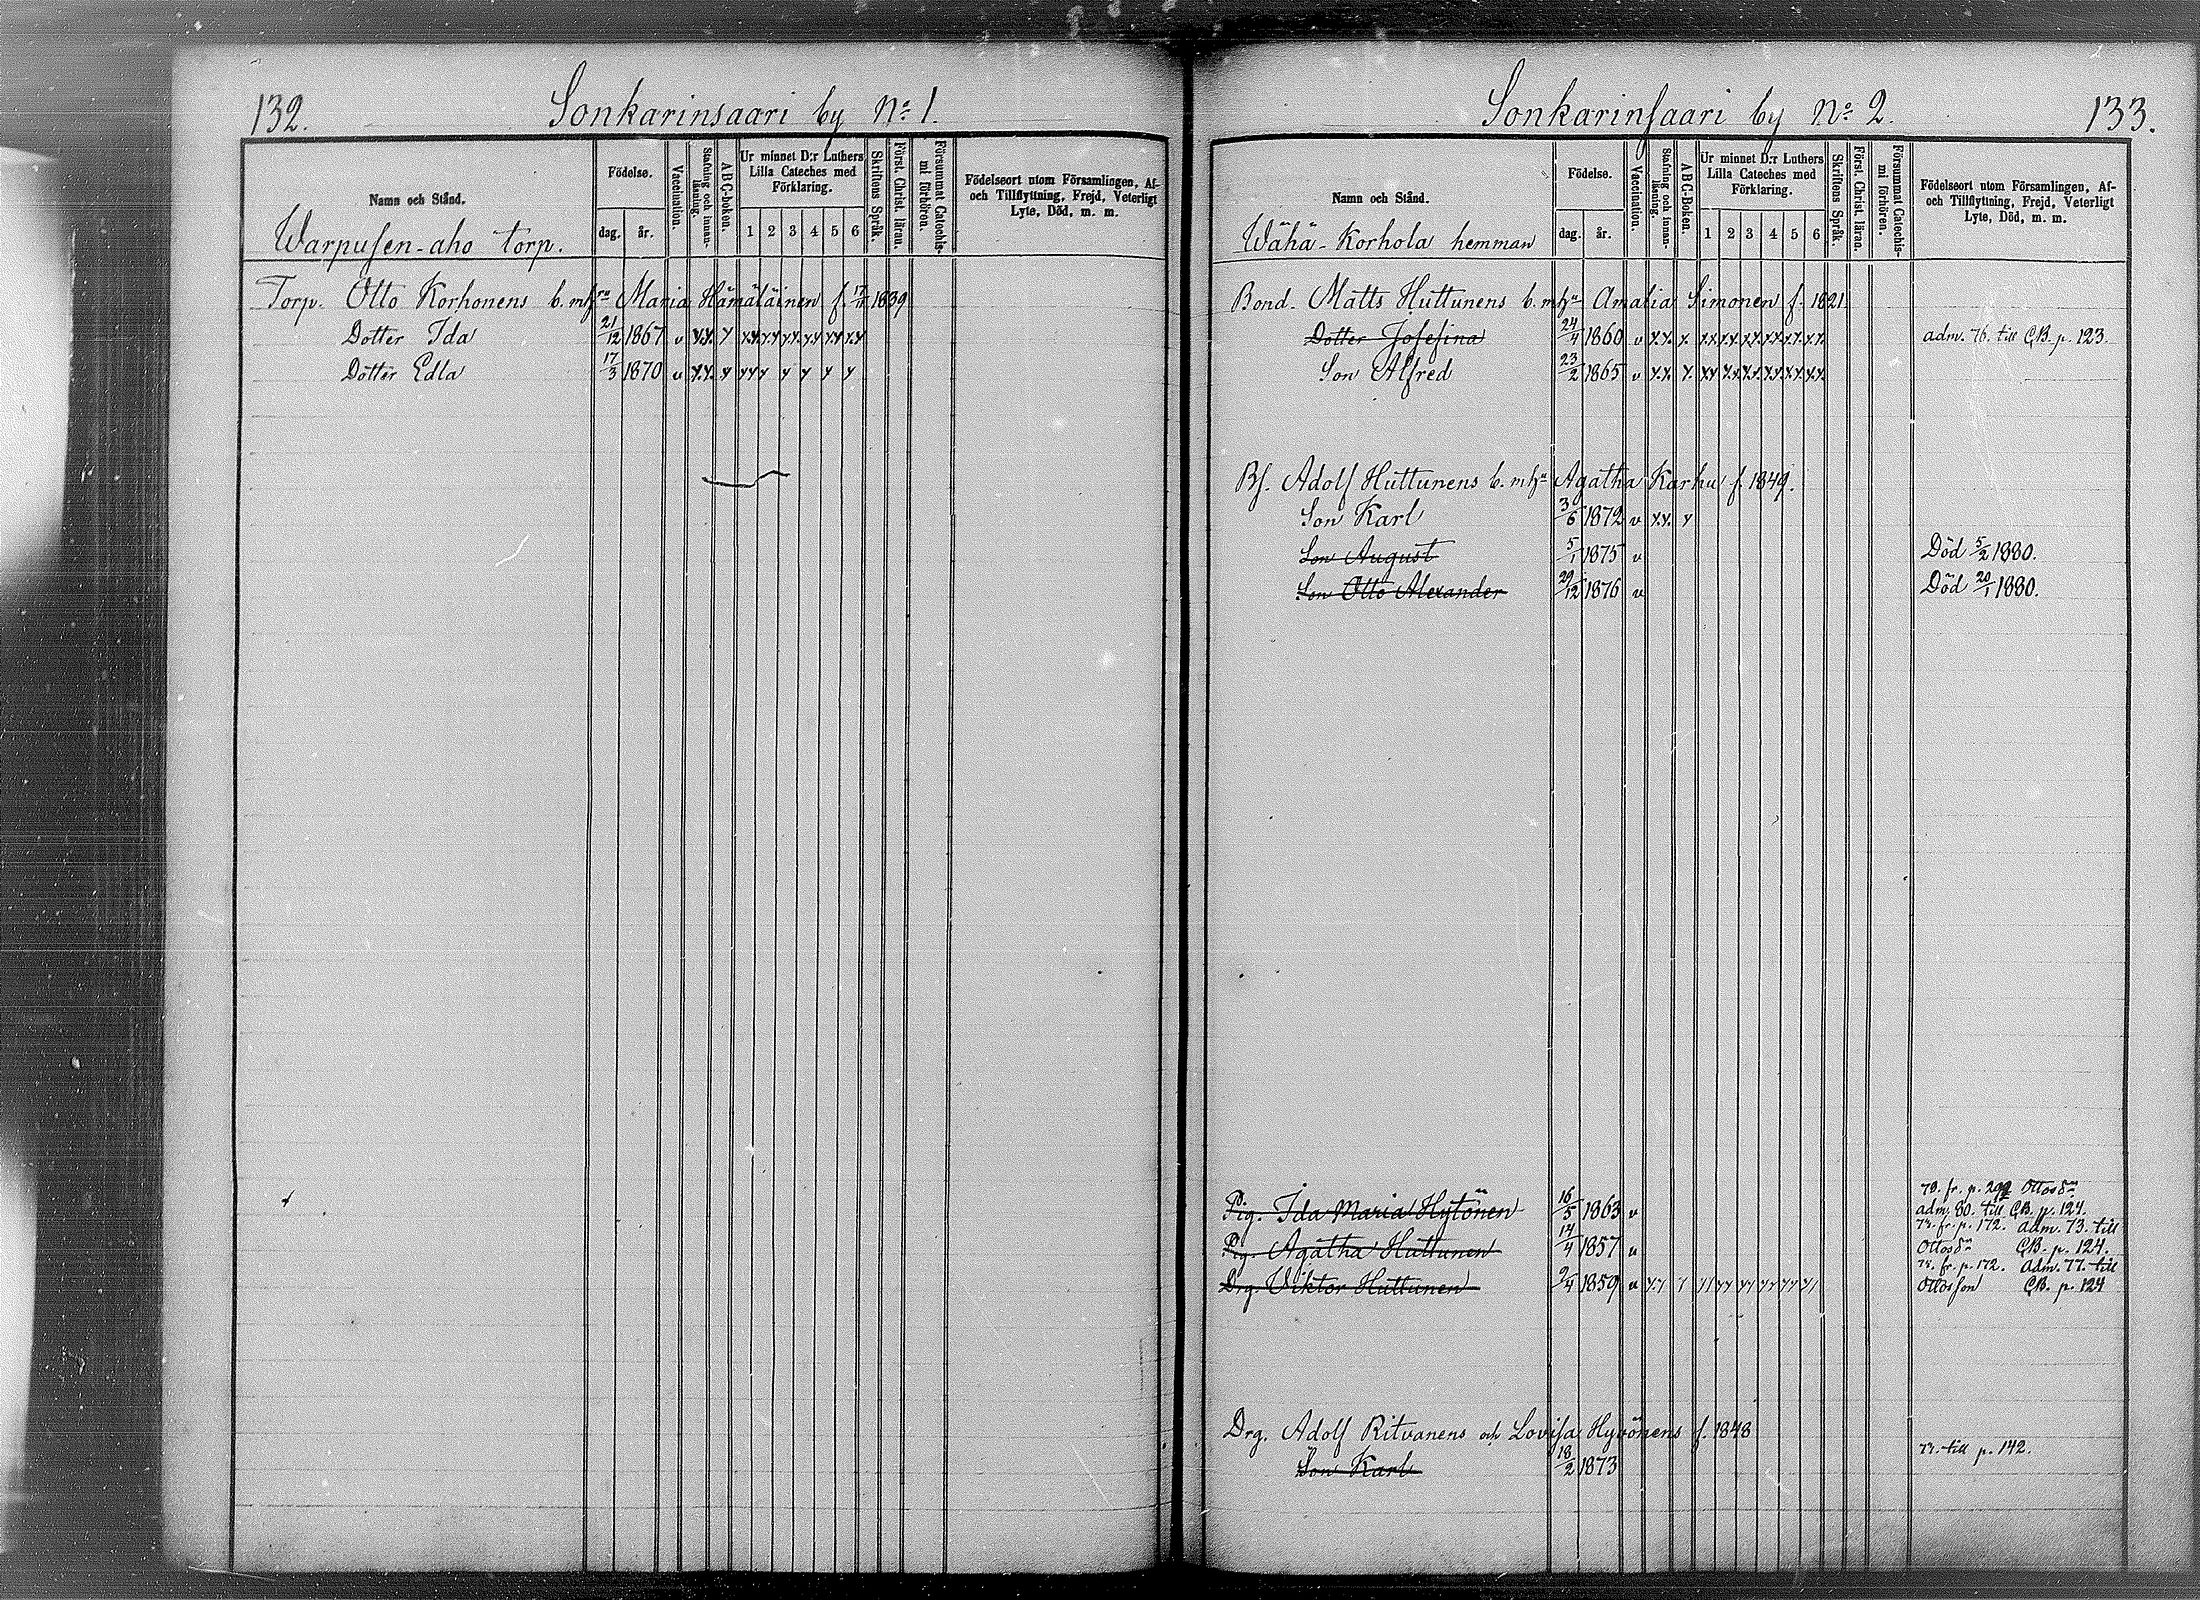 132.
Sonkarinsaari by No 1.
Namn och Stånd.
Födelse.
dag. år.
Vaccination.
Stafning och innan-läsning.
A B C-boken.
Ur minnet D:r Luthers
Lilla Cateches med
Förklaring.
1 2 3 4 5 6
Skriftens Språk.
Först. Christ. läran.
Försummat Catechis-
mi förhören.
Födelseort utom Församlingen, Af-
och Tillflyttning, Frejd, Veterligt
Lyte, Död, m. m.
Warpusen-aho torp.
Torp. Otto Korhonens b. m hru Maria Hämäläinen f. 17/11 1839
Dotter Ida 21/12 1867 v
Dotter Edla 17/3 1870 v
Sonkarinsaari by No 2.
133.
Namn och Stånd.
Födelse.
dag. år.
Vaccination.
Stafning och innan-läsning.
A B C-Boken.
Ur minnet D:r Luthers
Lilla Cateches med
Förklaring.
1 2 3 4 5 6
Skriftens Språk.
Först. Christ. läran.
Försummat Catechis-
mi förhören.
Födelseort utom Församlingen, Af-
och Tillflyttning, Frejd, Veterligt
Lyte, Död, m. m.
Wähä-Korhola hemman
Bond. Matts Huttunens b. m hu Amalia Simonen f. 1821.
Dotter Josefina 24/4 1860 v adm. 76. till CB. p. 123.
Son Alfred 23/2 1865 v
Bs. Adolf Huttunens b. m hu Agatha Karhu f. 1849.
Son Karl 3/6 1872 v
Son August 5/1 1875 v Död 5/2 1880.
Son Otto Alexander 29/12 1876 v Död 20/1 1880.
Pig. Ida Maria Hytönen 16/5 1863 v 79. fr. p. Ottosdr
adm. 80. till CB. p. 124.
Pig. Agatha Huttunen 14/4 1857 v fr. p. 172. adm. 73. till
Ottosdr CB. p. 124.
Drg. Viktor Huttunen 9/4 1859 v fr. p. 172. adm. 77. till
Ottosson CB. p. 124
Drg. Adolf Ritvanens och Lovisa Hyvönens f. 1848
Son Karl 18/2 1873 till p. 142.